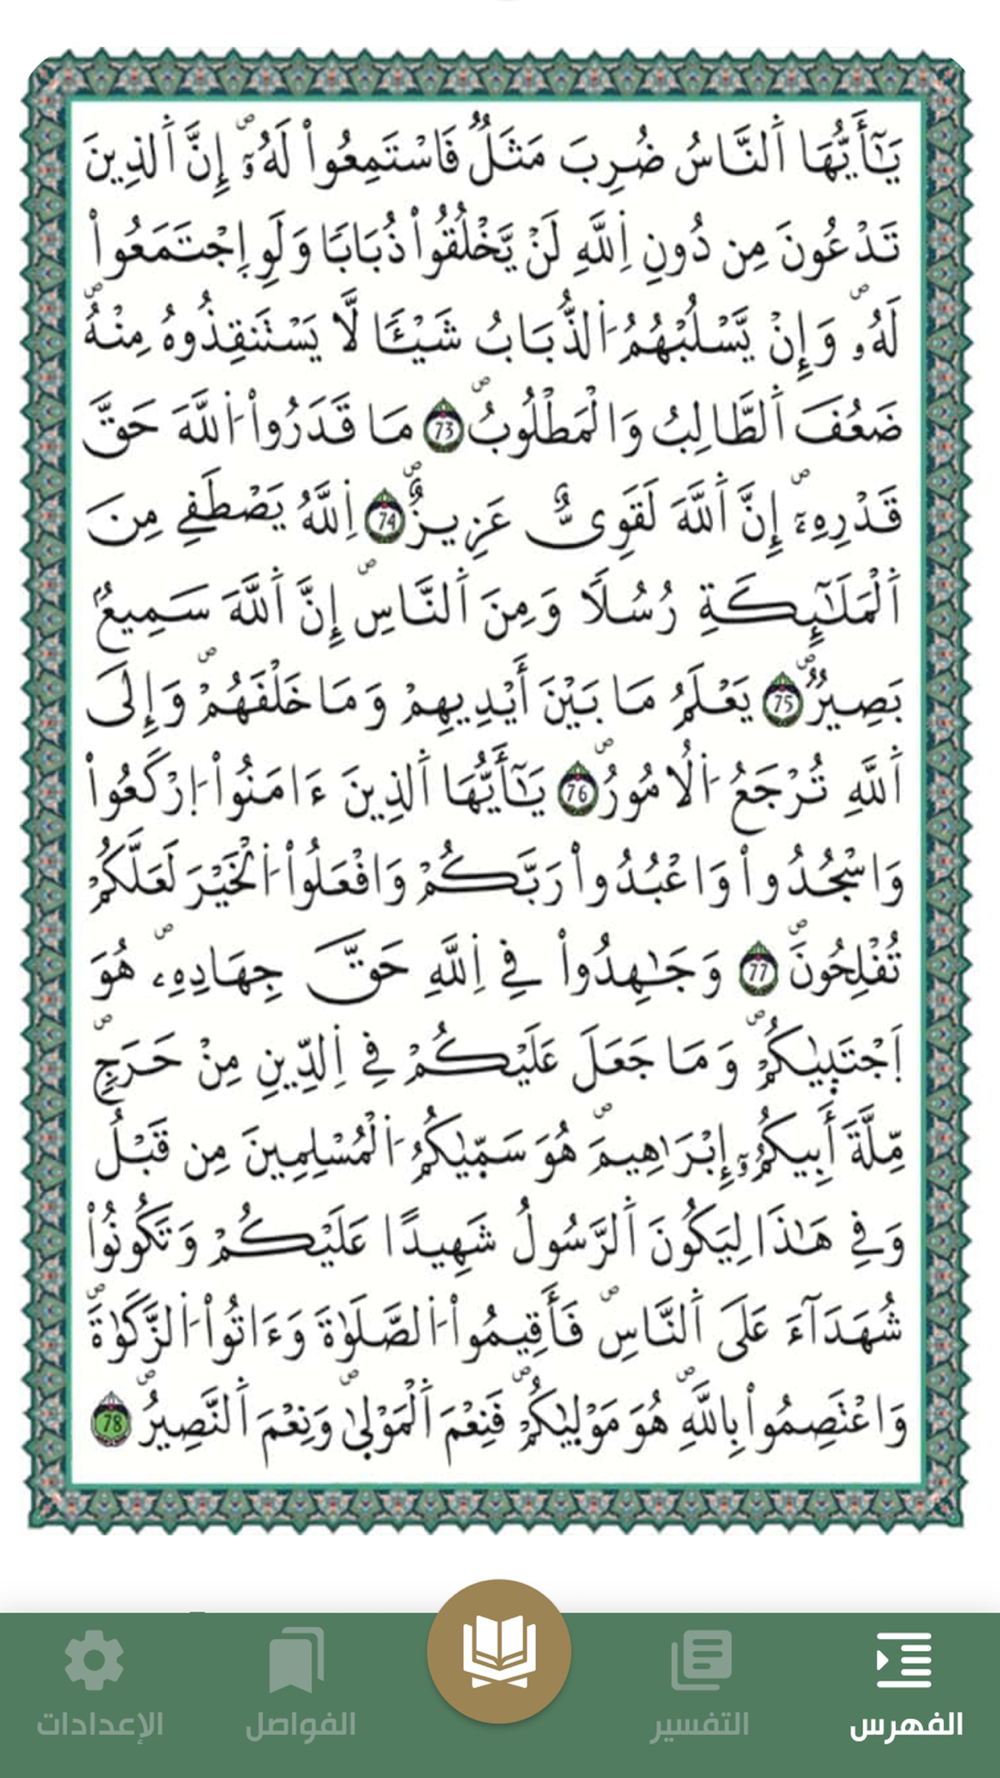 يَٰٓأَيُّهَا اَ۬لنَّاسُ ضُرِبَ مَثَلٞ فَاسْتَمِعُواْ لَهُۥٓۖ إِنَّ اَ۬لذِينَ
تَدْعُونَ مِن دُونِ اِ۬للَّهِ لَنْ يَّخْلُقُواْ ذُبَابٗا وَلَوِ اِ۪جْتَمَعُواْ
لَهُۥۖ وَإِنْ يَّسْلُبْهُمُ اُ۬لذُّبَابُ شَيْـٔٗا لَّا يَسْتَنقِذُوهُ مِنْهُۖ
ضَعُفَ اَ۬لطَّالِبُ وَالْمَطْلُوبُۖ 73 مَا قَدَرُواْ اُ۬للَّهَ حَقَّ
قَدْرِهِۦٓۖ إِنَّ اَ۬للَّهَ لَقَوِيٌّ عَزِيزٌۖ 74 اِ۬للَّهُ يَصْطَفِے مِنَ
اَ۬لْمَلَٰٓئِكَةِ رُسُلٗا وَمِنَ اَ۬لنَّاسِۖ إِنَّ اَ۬للَّهَ سَمِيعُۢ
بَصِيرٞۖ 75 يَعْلَمُ مَا بَيْنَ أَيْدِيهِمْ وَمَا خَلْفَهُمْۖ وَإِلَى
اَ۬للَّهِ تُرْجَعُ اُ۬لُامُورُۖ 76 يَٰٓأَيُّهَا اَ۬لذِينَ ءَامَنُواْ اُ۪رْكَعُواْ
وَاسْجُدُواْ وَاعْبُدُواْ رَبَّكُمْ وَافْعَلُواْ اُ۬لْخَيْرَ لَعَلَّكُمْ
تُفْلِحُونَۖ 77 وَجَٰهِدُواْ فِے اِ۬للَّهِ حَقَّ جِهَادِهِۦۖ هُوَ
اَ۪جْتَب۪يٰكُمْۖ وَمَا جَعَلَ عَلَيْكُمْ فِے اِ۬لدِّينِ مِنْ حَرَجٖۖ
مِّلَّةَ أَبِيكُمُۥٓ إِبْرَٰهِيمَۖ هُوَ سَمّ۪يٰكُمُ اُ۬لْمُسْلِمِينَ مِن قَبْلُ
وَفِے هَٰذَا لِيَكُونَ اَ۬لرَّسُولُ شَهِيدًا عَلَيْكُمْ وَتَكُونُواْ
شُهَدَآءَ عَلَى اَ۬لنَّاسِۖ فَأَقِيمُواْ اُ۬لصَّلَوٰةَ وَءَاتُواْ اُ۬لزَّكَوٰةَۖ
وَاعْتَصِمُواْ بِاللَّهِۖ هُوَ مَوْل۪يٰكُمْۖ فَنِعْمَ اَ۬لْمَوْل۪يٰۖ وَنِعْمَ اَ۬لنَّصِيرُۖ 78
الفهرس
التفسير
الفواصل
الإعدادات